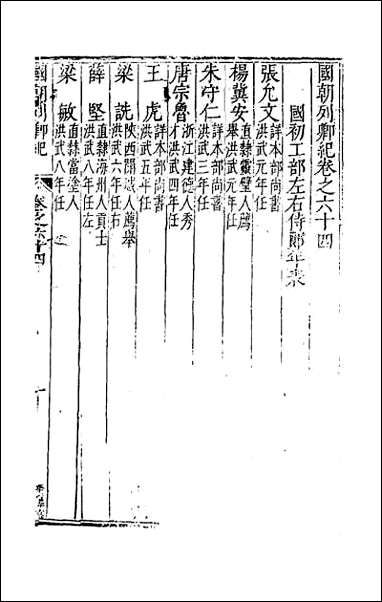 國朝列卿紀卷之六十四
國初工部左右侍郎年表
張允文 詳本部尚書
洪武元年任
楊冀安 直隸靈璧人薦
舉洪武元年任
朱守仁 詳本部尚書
洪武三年任
唐宗魯 浙江建德人秀
才洪武四年任
王虎 詳本部尚書
洪武五年任
梁詵 陝西開城人薦舉
洪武六年任右
薛堅 直隸海州人貢士
洪武八年任左
梁敏 直隸當塗人
洪武八年任
國朝列卿紀 卷之六十四 一